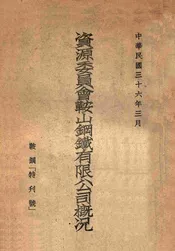 中華民國三十六年三月
資源委員會鞍山鋼鐵有限公司概況
鞍鋼「特刊號」